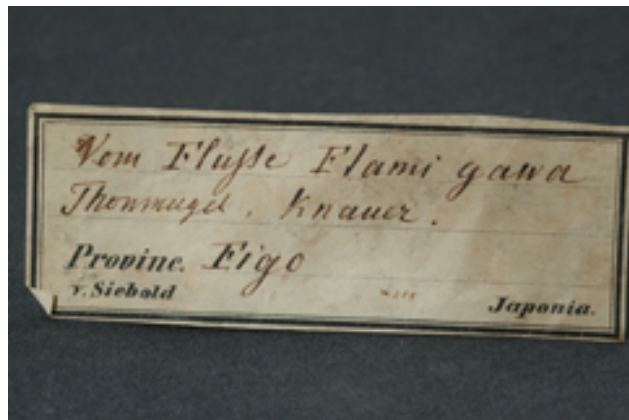 Vom Flusse Flami gawa
Thonmugel. Knauer.
Provinc. Figo
v. Siebold
Japonia.